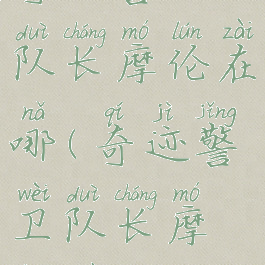 duì cháng mó lún zài
队长摩伦在
nǎ qí jì jǐng
哪(奇迹警
wèi duì cháng mó
卫队长摩